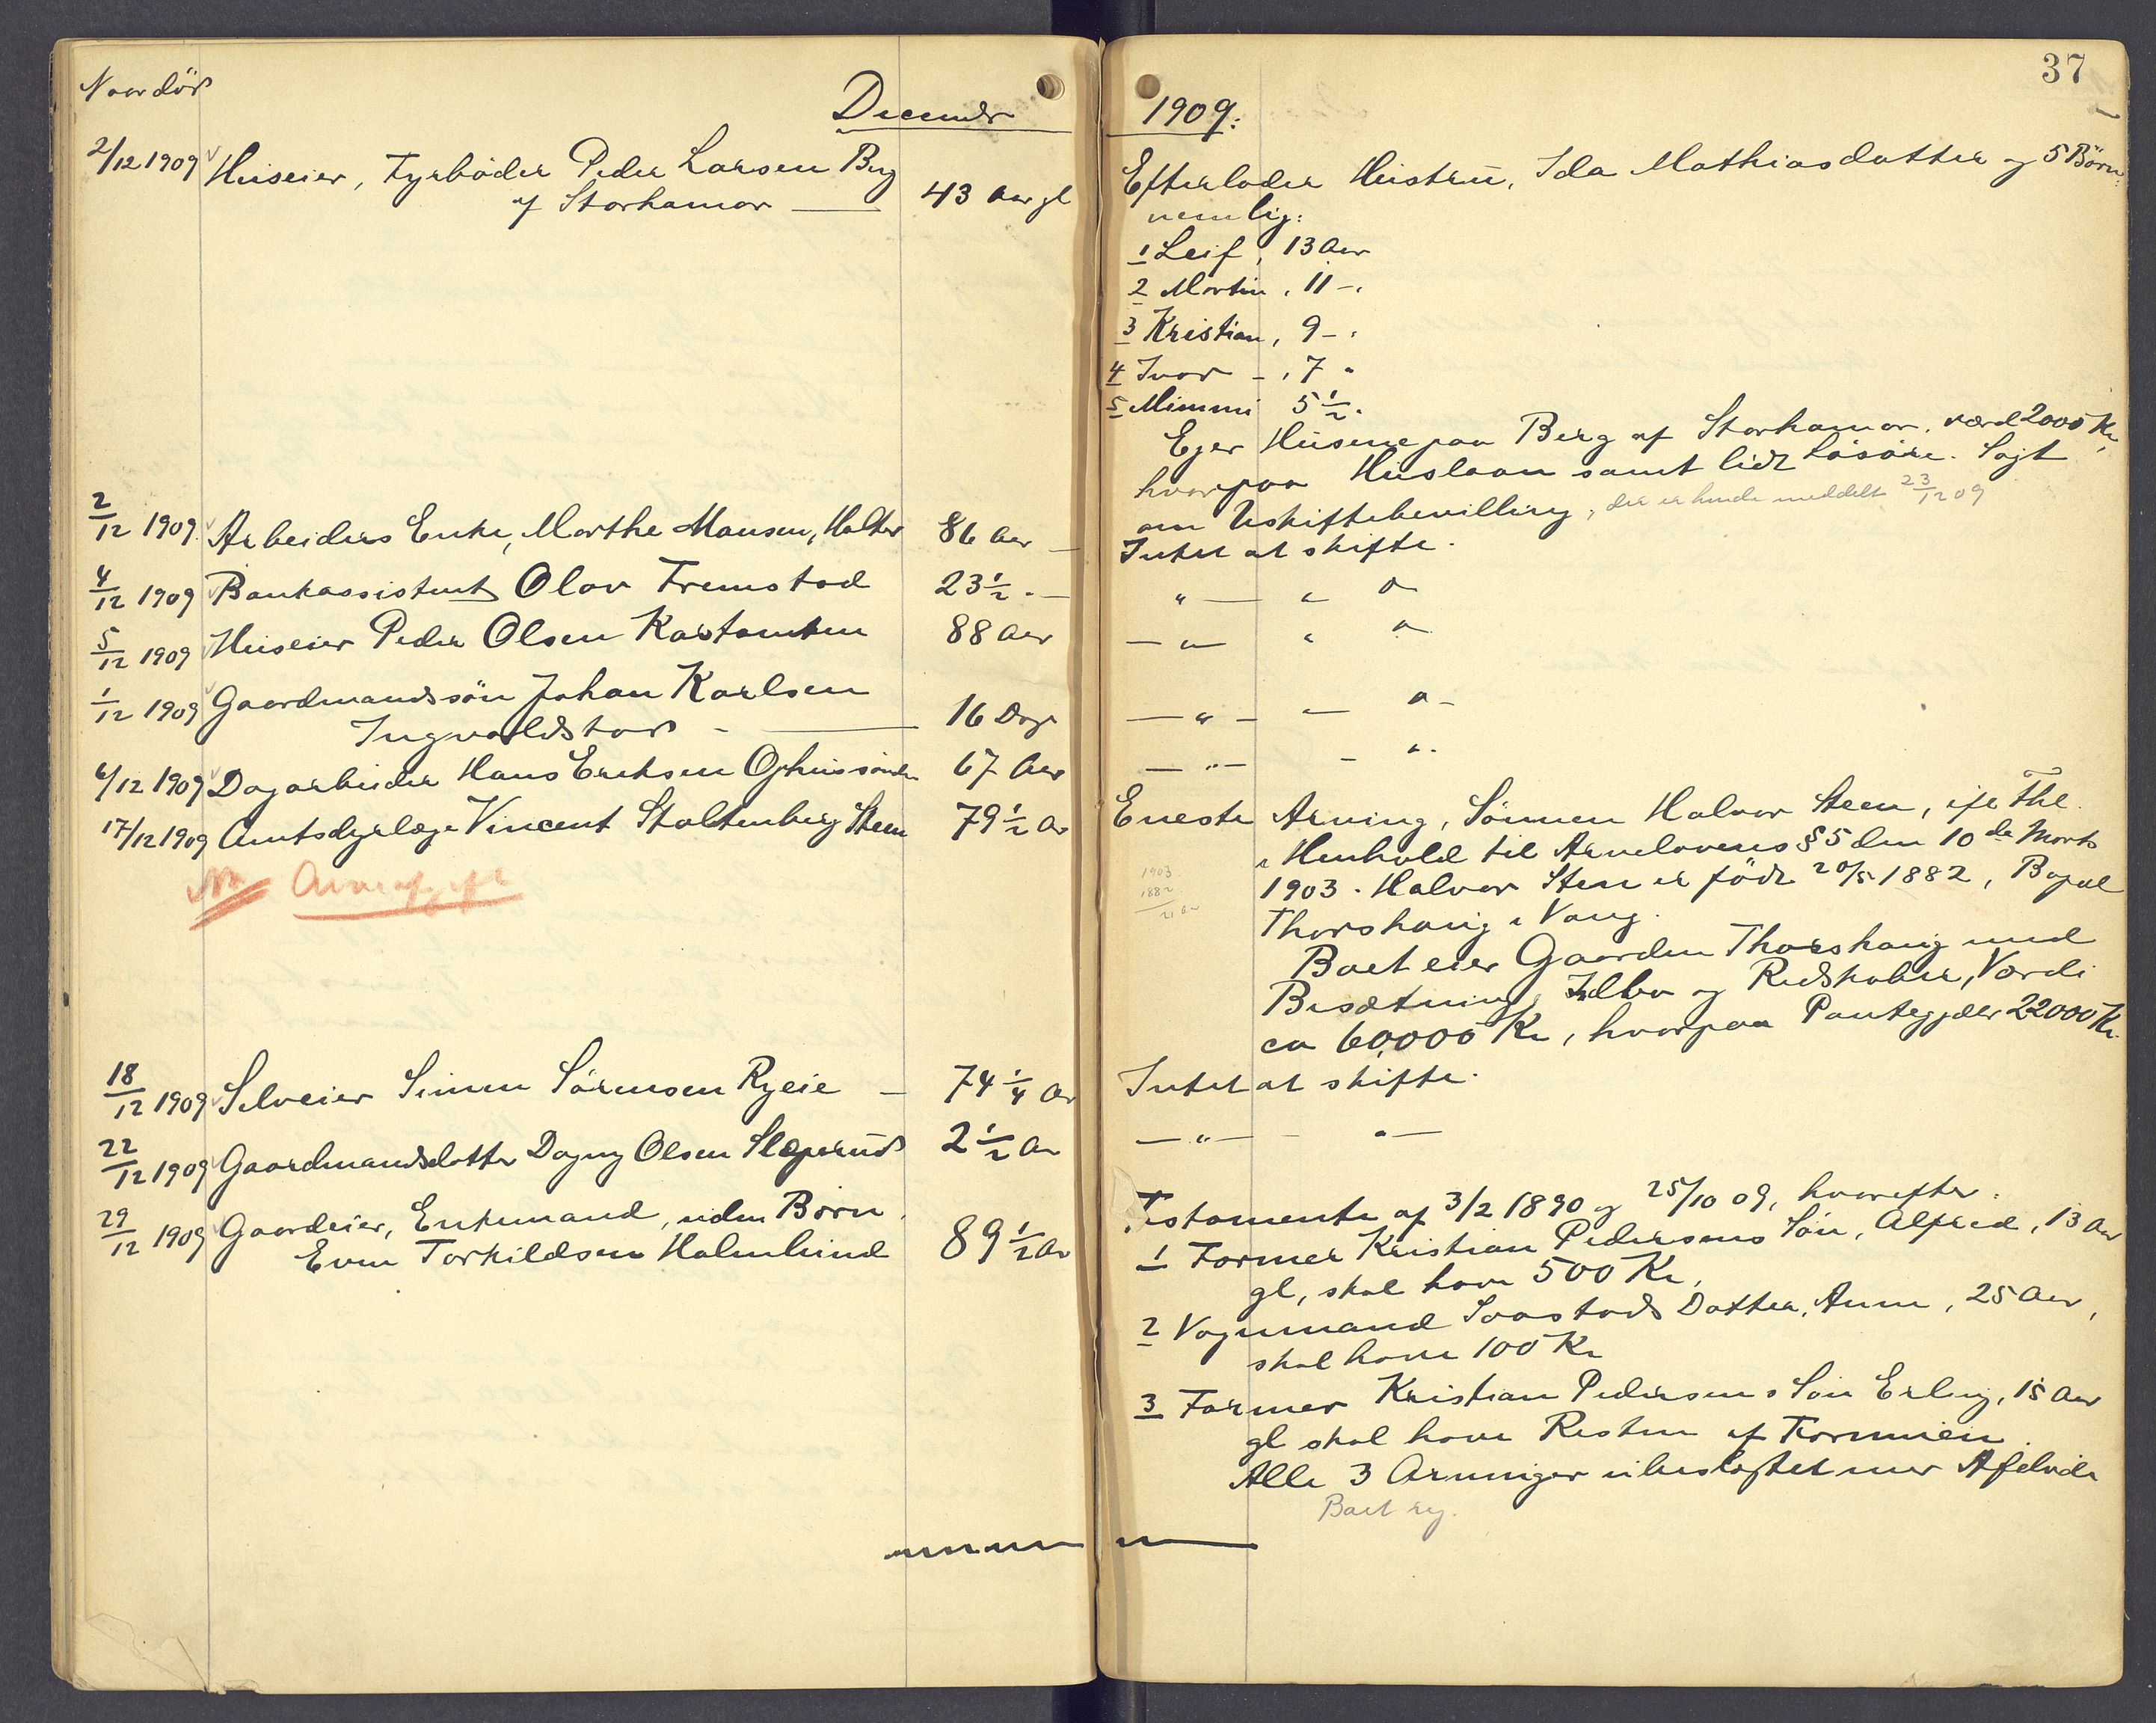 Naar død
December
2/12 1909 Huseier, Fyrbøder Peder Larsen Berg
af Storhamar — 43 Aar gl
2/12 1909 Arbeiders Enke, Marthe Hansen, Holter 86 Aar —
4/12 1909 Bankassistent Olav Fremstad 23 1/2 " —
5/12 1909 Huseier Peder Olsen Kastomten 88 Aar
1/12 1909 Gaardmandssøn Johan Karlsen
Ingvaldstad — 16 Dage
6/12 1909 Dagarbeider Hans Eriksen Ophus 67 Aar
17/12 1909 Amtsdyrlæge Vincent Stoltenberg Steen 79 1/2 Ar
NB Arveafgift
18/12 1909 Selveier Simen Sørensen Ryeie — 74 1/4 Ar
22/12 1909 Gaardmandsdatter Dagny Olsen Slæperud 2 1/2 Ar
29/12 1909 Gaardeier, Enkemand, uden Børn,
Even Torkildsen Holmlund 89 1/2 Ar
37
1909:
Efterlader Hustru, Ida Mathiasdatter og 5 Børn:
nemlig:
1 Leif, 13 Aar
2 Martin, 11 — "
3 Kristian, 9 — "
4 Ivar — , 7 "
5 Mimmi 5 1/2 "
Ejer Husene paa Berg af Storhamar, værd 2000 Kr,
hvorpaa Huslaan samt lidt Løsøre. Søgt
om Uskiftebevilling, der er hende meddelt 23/12 09
Intet at skifte.
" — " "
— " — " "
— " — — " —
— " — — " .
Eneste Arving, Sønnen Halvor Steen, ifl Thl.
i Henhold til Arvelovens § 5 den 10de Marts
1903. Halvor Steen er født 20/5 1882, Bopæl
1903
1882
21 Ar
Thorshaug i Vang.
Boet eier Gaarden Thorshaug med
Besætning, Indbo og Redskaber, Værdi
ca 60,000 Kr, hvorpaa Pantegjæld 22000 Kr.
Intet at skifte.
— " — — " —
Testamente af 3/2 1890 og 25/10 09, hvorefter:
1 Farmer Kristian Pedersens Søn, Alfred, 13 Aar
gl, skal have 500 Kr,
2 Vognmand Saastads Datter, Anne, 25 Aar,
skal have 100 Kr
3 Farmer Kristian Pedersens Søn Erling, 15 Aar
gl skal have Resten af Formuen.
Alle 3 Arvinger ubeslægtet med Afdøde
Boet reg.